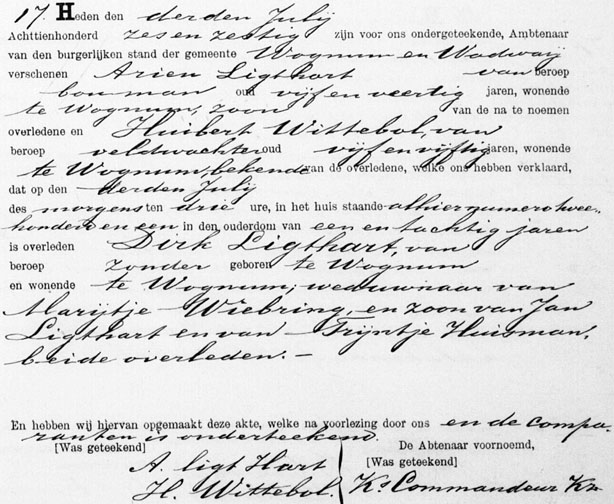 17. Heden den derden Julij
Achttienhonderd zes en zestig zijn voor ons ondergeteekende, Ambtenaar
van den burgerlijken stand der gemeente Wognum en Wadwaij
verschenen Arien Ligthart van beroep
bouman oud vijf en veertig jaren, wonende
te Wognum, zoon van de na te noemen
overledene en Huibert Wittebol, van
beroep veldwachter oud vijf en vijftig jaren, wonende
te Wognum, bekende van de overledene, welke ons hebben verklaard,
dat op den derden Julij
des morgens ten drie ure, in het huis staande alhier numero twee-
honderd en een, in den ouderdom van een en tachtig jaren
is overleden Dirk Ligthart, van
beroep zonder geboren te Wognum
en wonende te Wognum, weduwnaar van
Marijtje Wiebring, en zoon van Jan
Ligthart en van Trijntje Huisman,
beide overleden. –
En hebben wij hiervan opgemaakt deze akte, welke na voorlezing door ons en de compa-
ranten is onderteekend.
[Was geteekend] De Abtenaar voornoemd,
A. ligt Hart [Was geteekend]
H. Wittebol. Ks Commandeur Kz.